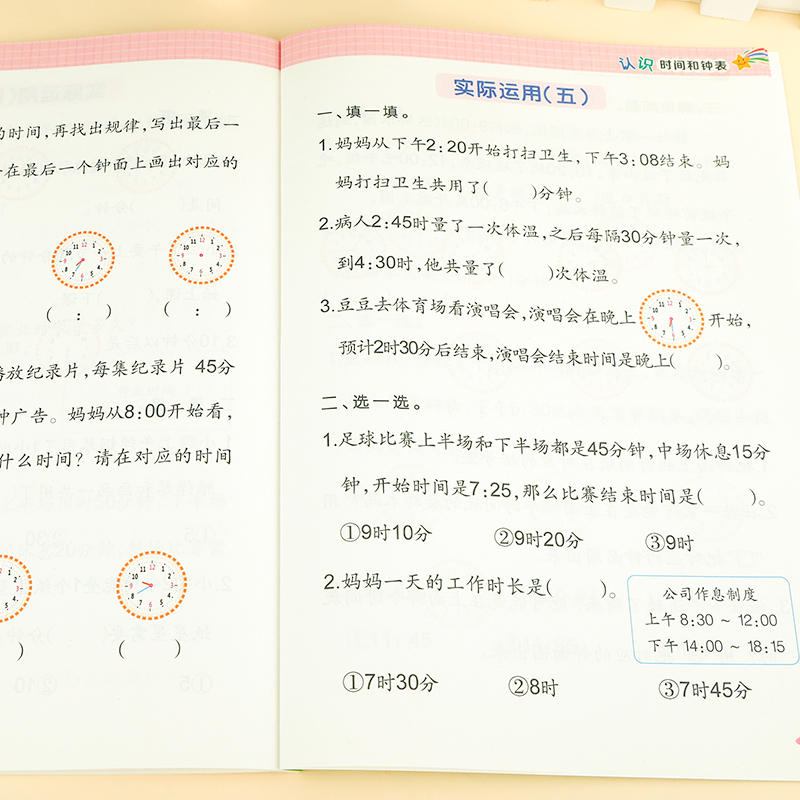 的时间，再找出规律，写出最后一
在最后一个钟面上画出对应的
( : ) ( : )
播放纪录片，每集纪录片 45分
钟广告。妈妈从8:00开始看，
什么时间？请在对应的时间
( ) ( )
认识 时间和钟表
实际运用(五)
一、填一填。
1.妈妈从下午2:20开始打扫卫生，下午3:08结束。妈
妈打扫卫生共用了( )分钟。
2.病人2:45时量了一次体温，之后每隔30分钟量一次，
到4:30时，他共量了( )次体温。
3.豆豆去体育场看演唱会，演唱会在晚上 开始，
预计2时30分后结束，演唱会结束时间是晚上( )。
二、选一选。
1.足球比赛上半场和下半场都是45分钟，中场休息15分
钟，开始时间是7:25，那么比赛结束时间是( )。
①9时10分 ②9时20分 ③9时
2.妈妈一天的工作时长是( )。
公司作息制度
上午 8:30 ~ 12:00
下午 14:00 ~ 18:15
①7时30分 ②8时 ③7时45分